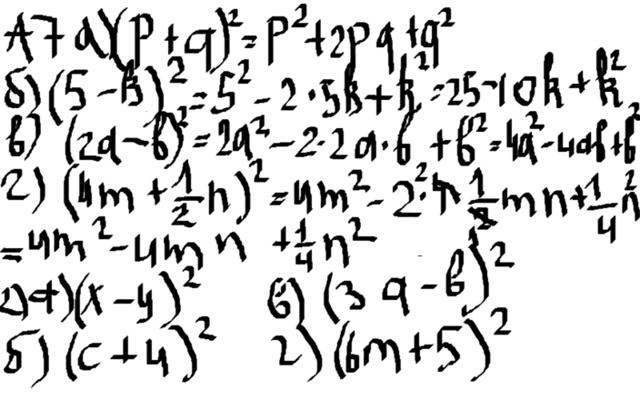 А7 а)(p+q)²=p²+2pq+q²
б)(5-k)²=5²-2·5k+k²=25-10k+k²
в) (2a-b)²=2a²-2·2a·b+b²=4a²-4ab+b²
г) (4m+1/2n)²=4m²-2·4 1/2mn+1/4n²
=4m²-4mn+1/4n²
2)а)(x-y)² в) (3a-b)²
б)(c+4)² г)(6m+5)²